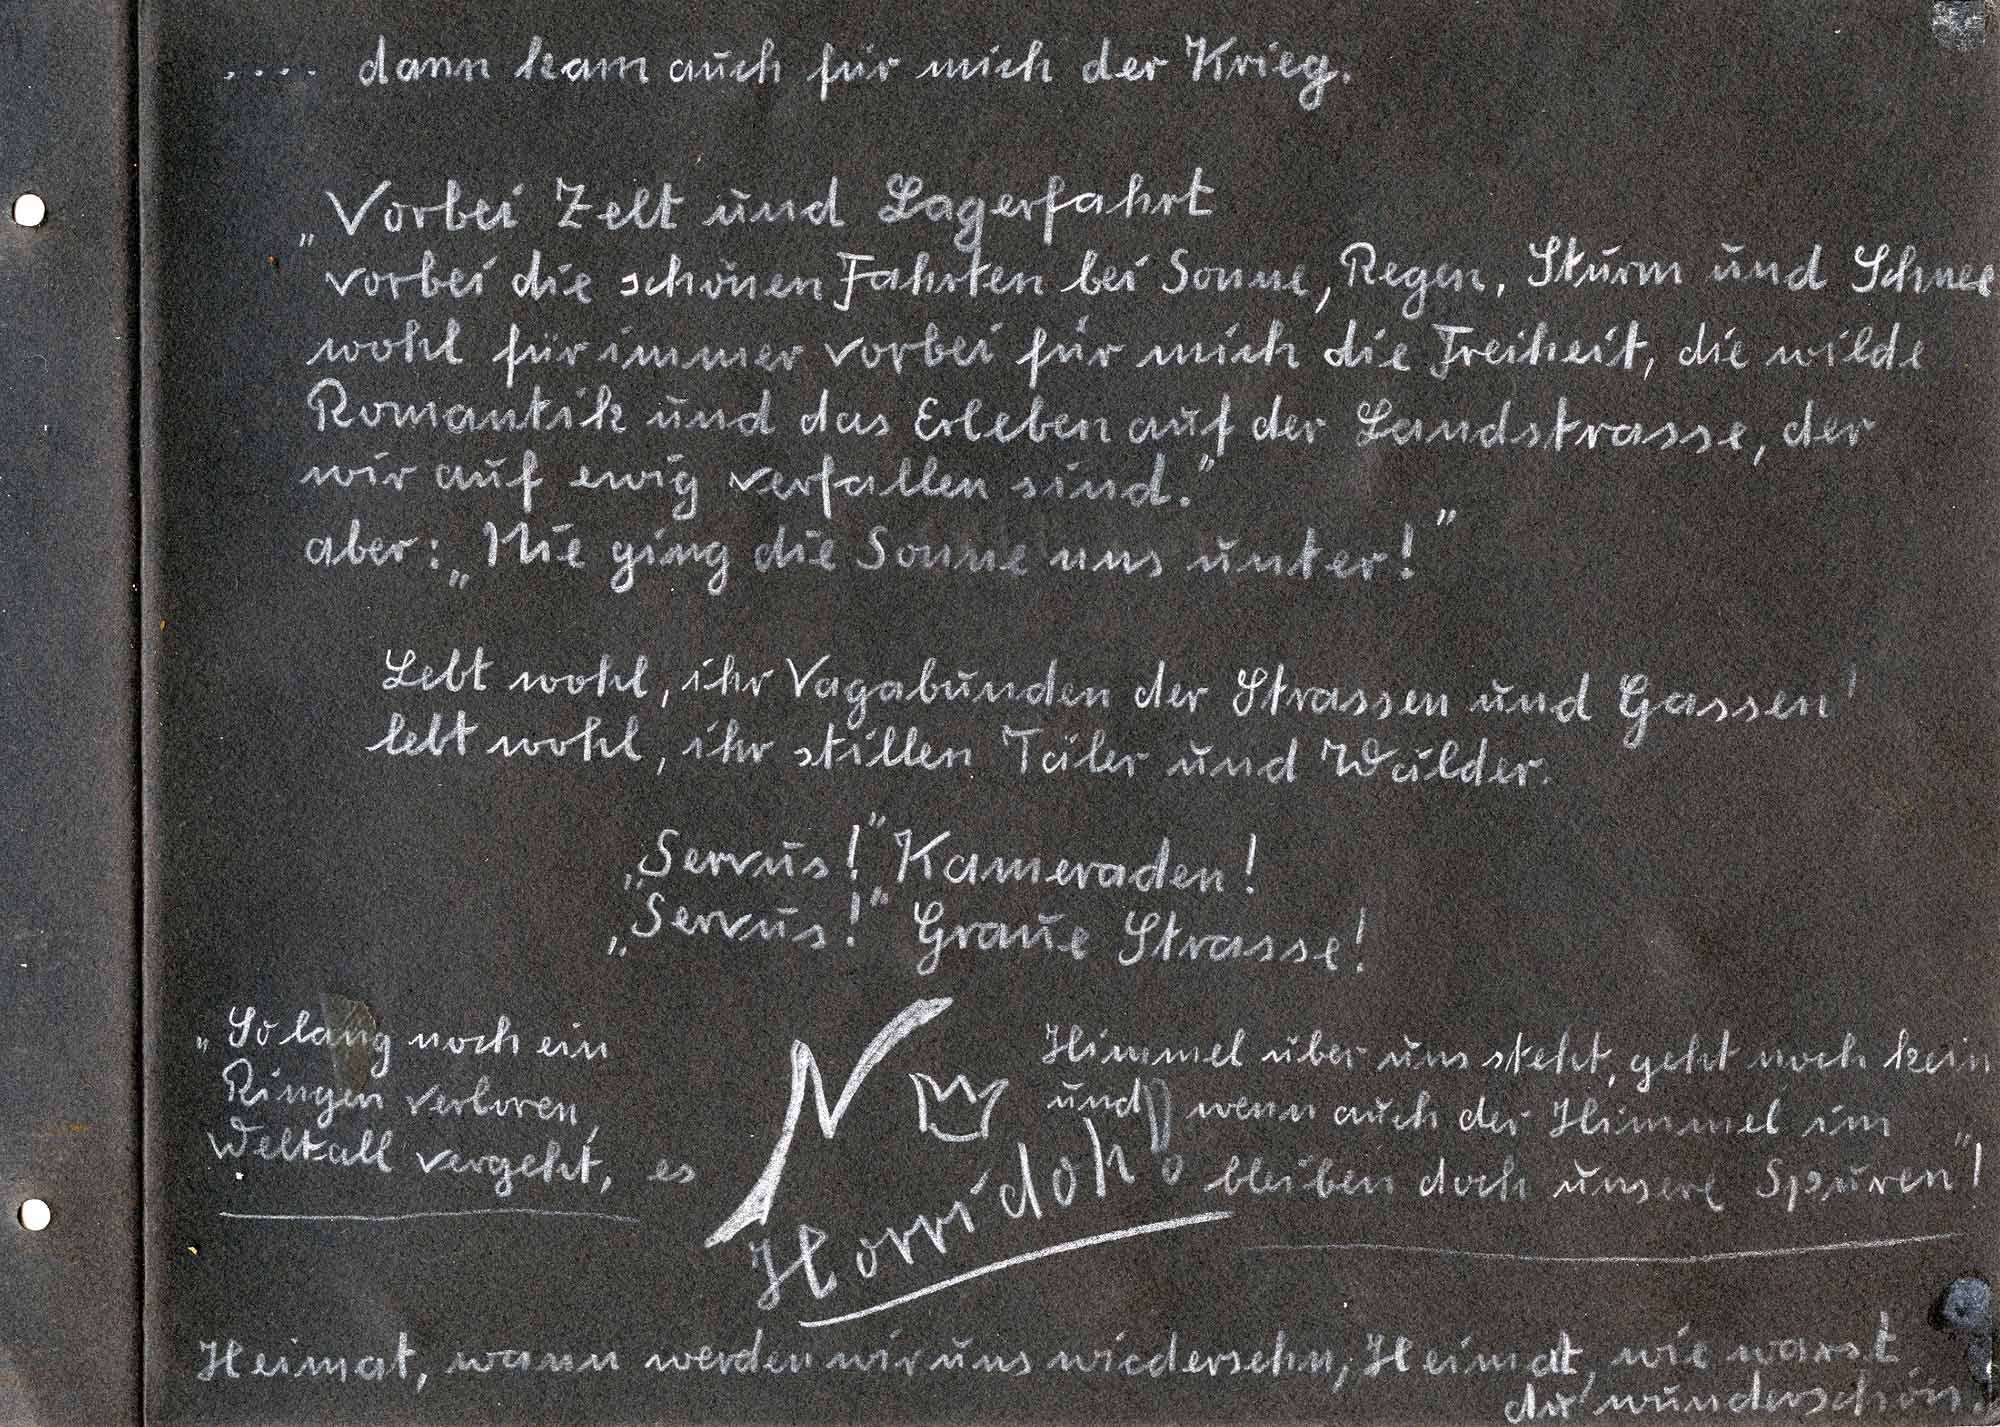 .... dann kam auch für mich der Krieg.
„Vorbei Zelt und Lagerfahrt
vorbei die schönen Fahrten bei Sonne, Regen, Sturm und Schnee
wohl für immer vorbei für mich die Freiheit, die wilde
Romantik und das Erleben auf der Landstrasse, der
wir auf ewig verfallen sind."
aber: „Nie ging die Sonne uns unter!"
Lebt wohl, ihr Vagabunden der Strassen und Gassen!
lebt wohl, ihr stillen Täler und Wälder.
„Servus!" Kameraden!
„Servus!" Graue Strasse!
„So lang noch ein Himmel über uns steht, geht noch kein
Ringen verloren, und wenn auch der Himmel im
Weltall vergeht, es bleiben doch unsere Spuren"!
Horridoh!
Heimat, wann werden wir uns wiedersehn, Heimat, wie warst
du wunderschön.